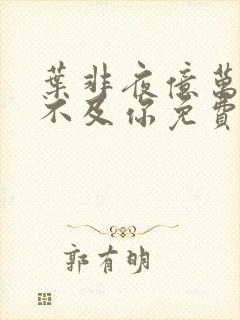 葉非夜億萬
不及你免費
郭有明